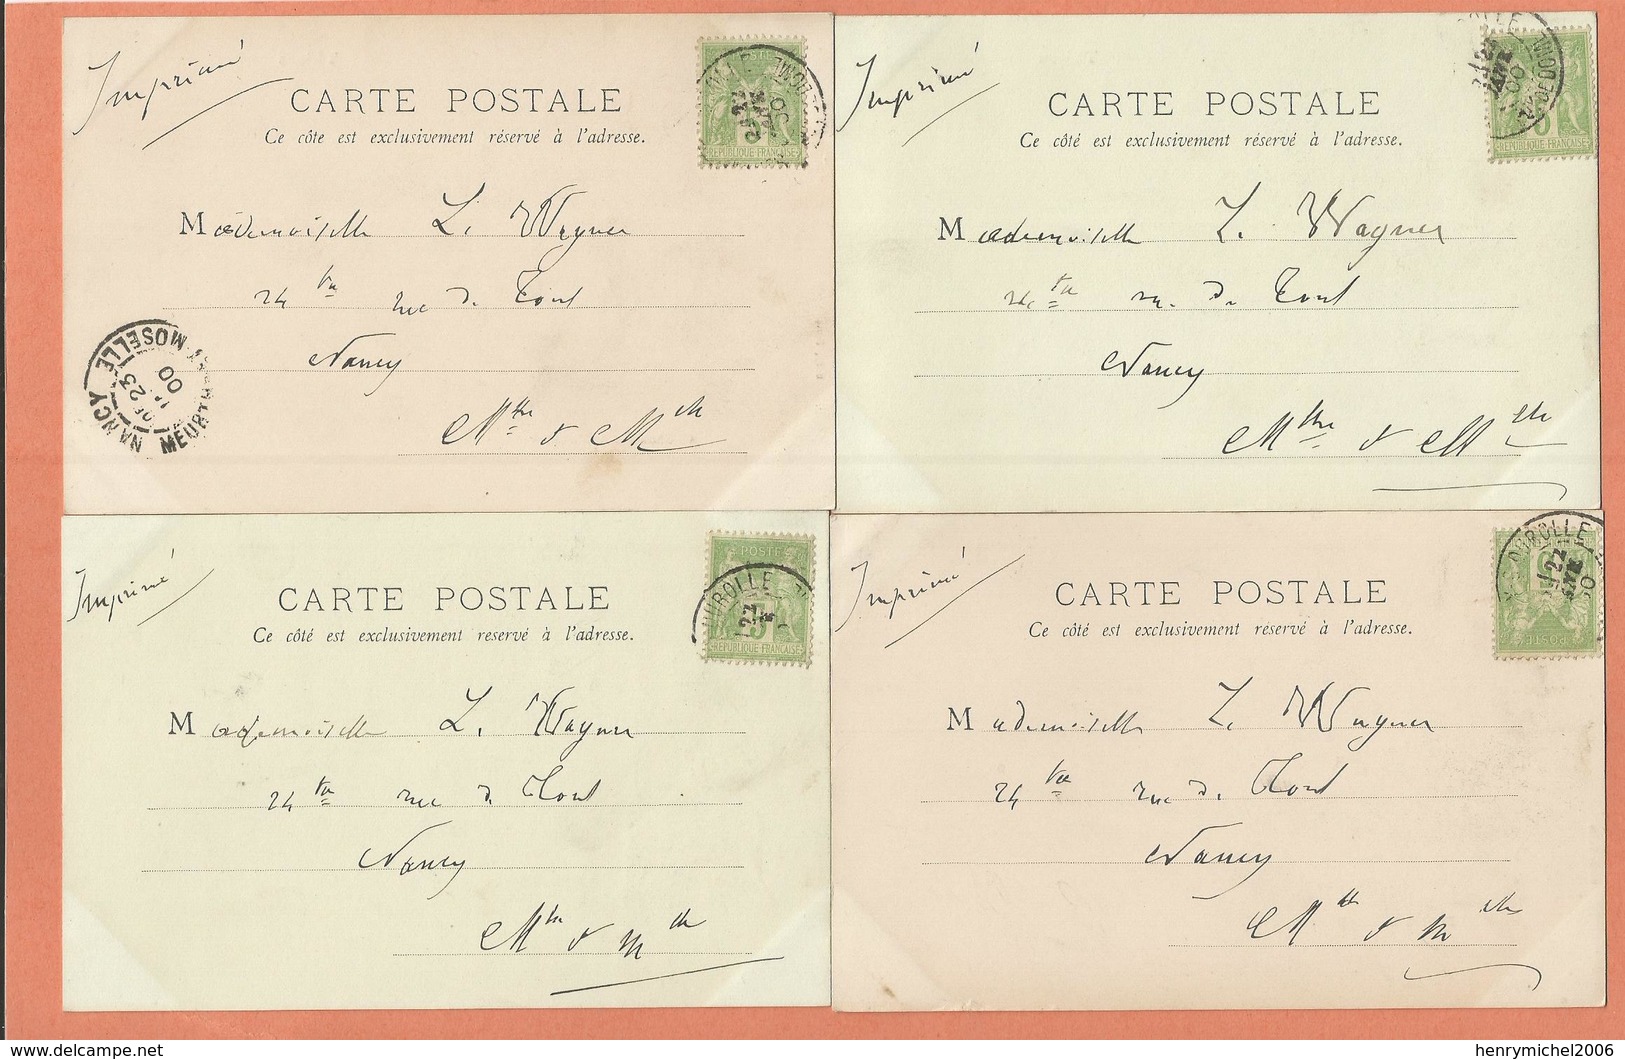 Imprimé
CARTE POSTALE
Ce côté est exclusivement réservé à l'adresse.
POSTE
5
RÉPUBLIQUE FRANÇAISE
Mademoiselle L. Wagner
24 ter rue de Toul
Nancy
Mthe & Mlle
NANCY
MEURTHE & MOSELLE
23
00
Imprimé
CARTE POSTALE
Ce côté est exclusivement réservé à l'adresse.
RÉPUBLIQUE FRANÇAISE
Mademoiselle L. Wagner
24 ter rue de Toul
Nancy
Mthe & Mlle
Imprimé
CARTE POSTALE
Ce côté est exclusivement réservé à l'adresse.
POSTE
5
RÉPUBLIQUE FRANÇAISE
DUROLLE
22
Mademoiselle L. Wagner
24 ter rue de Toul
Nancy
Mthe & Mlle
Imprimé
CARTE POSTALE
Ce côté est exclusivement réservé à l'adresse.
DUROLLE
22
POSTE
Mademoiselle L. Wagner
24 ter rue de Toul
Nancy
Mthe & Mlle
delcampe.net
henrymichel2006